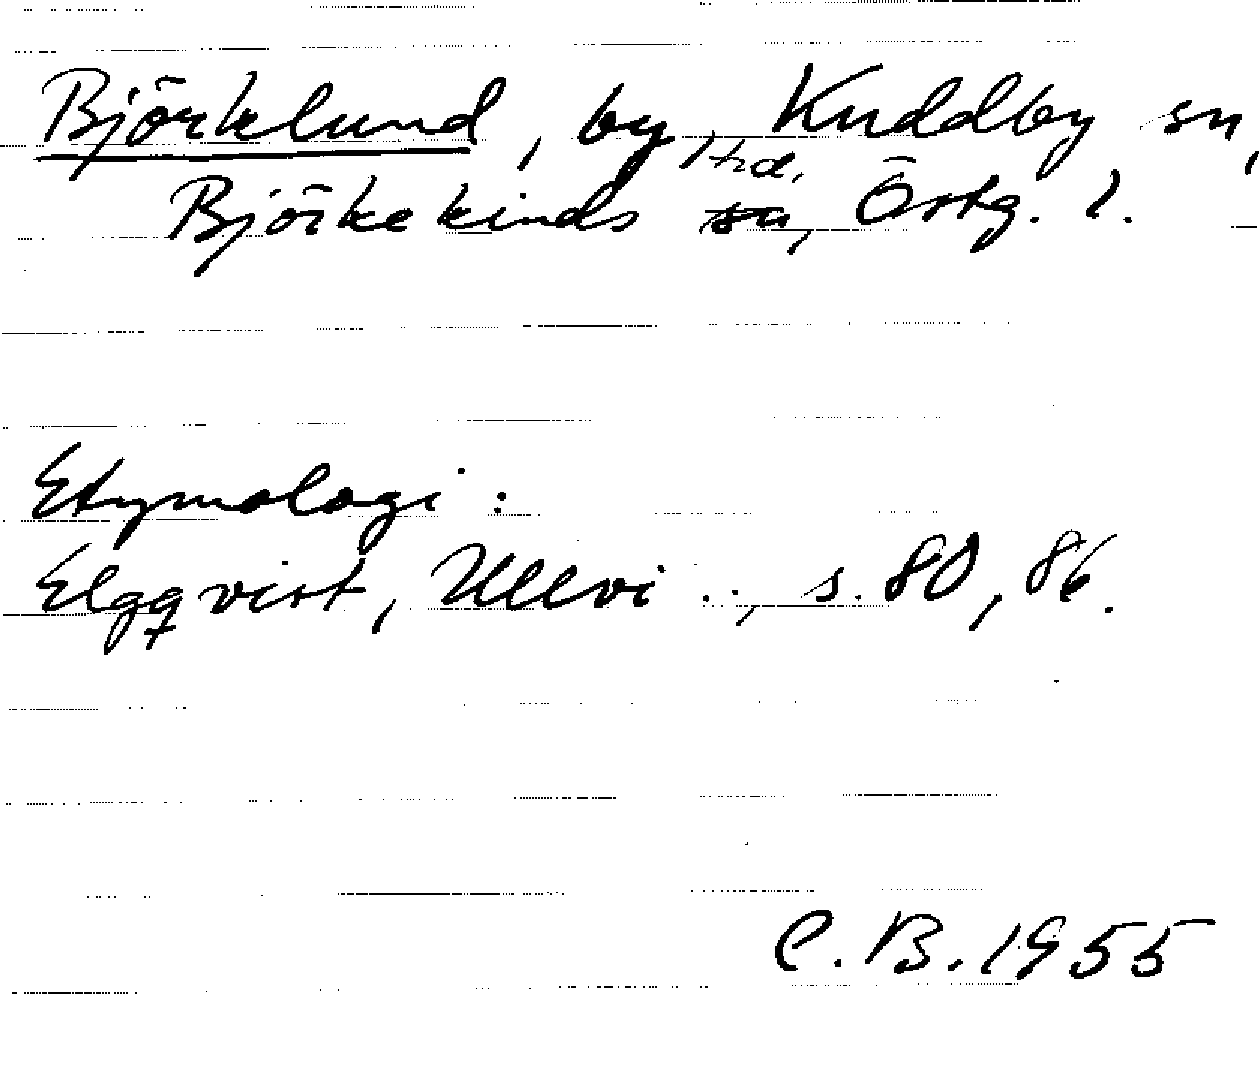 Björklund, by, Kuddby sn,
Björkekinds hd, Östg. l.
Etymologi:
Elgqvist, Ullvi .., s. 80, 86.
C. B. 1955